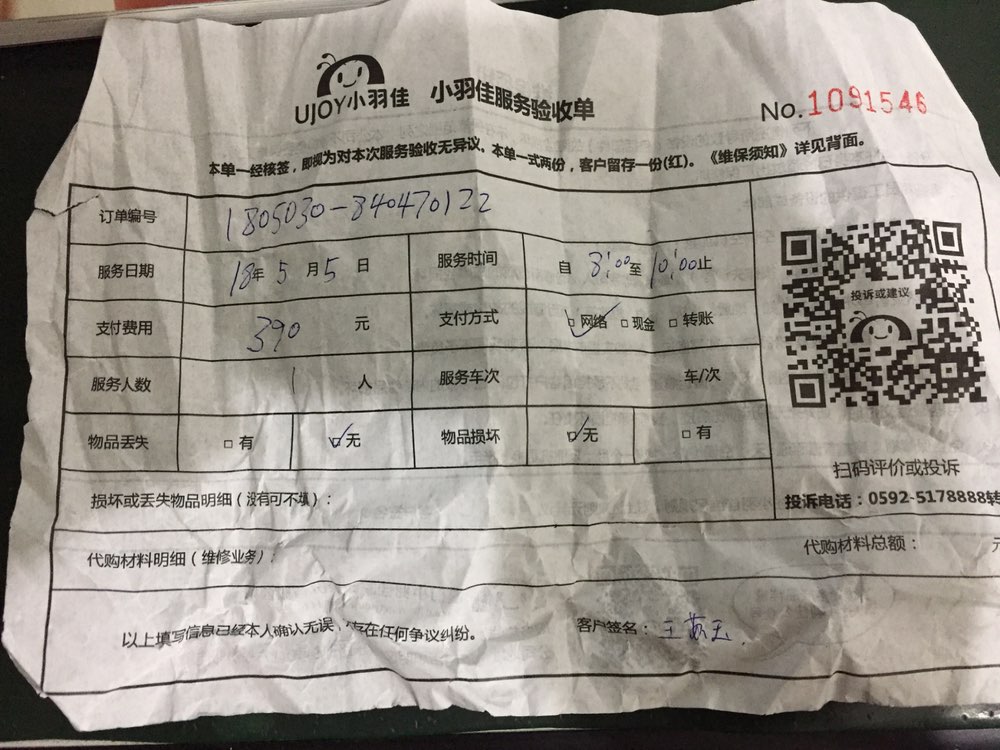 UJOY小羽佳 小羽佳服务验收单 No.1091546
本单一经核签，即视为对本次服务验收无异议。本单一式两份，客户留存一份(红)。《维保须知》详见背面。
订单编号 1805030-840470122
服务日期 18年5月5日 服务时间 自8:00至10:00止
支付费用 390 元 支付方式 □网络 □现金 □转账
服务人数 1 人 服务车次 车/次
物品丢失 □有 □无 物品损坏 □无 □有
投诉或建议
扫码评价或投诉
投诉电话：0592-5178888转
损坏或丢失物品明细（没有可不填）：
代购材料明细（维修业务）： 代购材料总额： 元
以上填写信息已经本人确认无误，存在任何争议纠纷。 客户签名：王苏玉